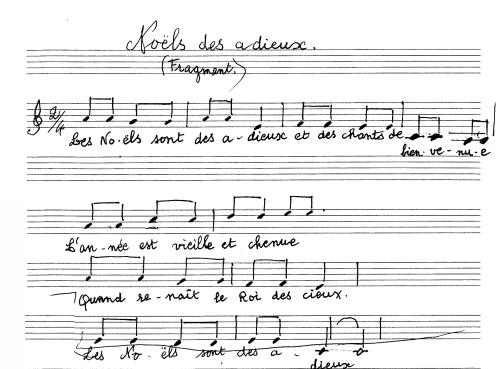 Noëls des adieux.
(Fragment.)
2/4
Les No-ëls sont des a-dieux et des chants de
bien-ve-nu-e
L'an-née est vieille et chenue
Quand re-naît le Roi des cieux.
Les No-ëls sont des a-
dieux